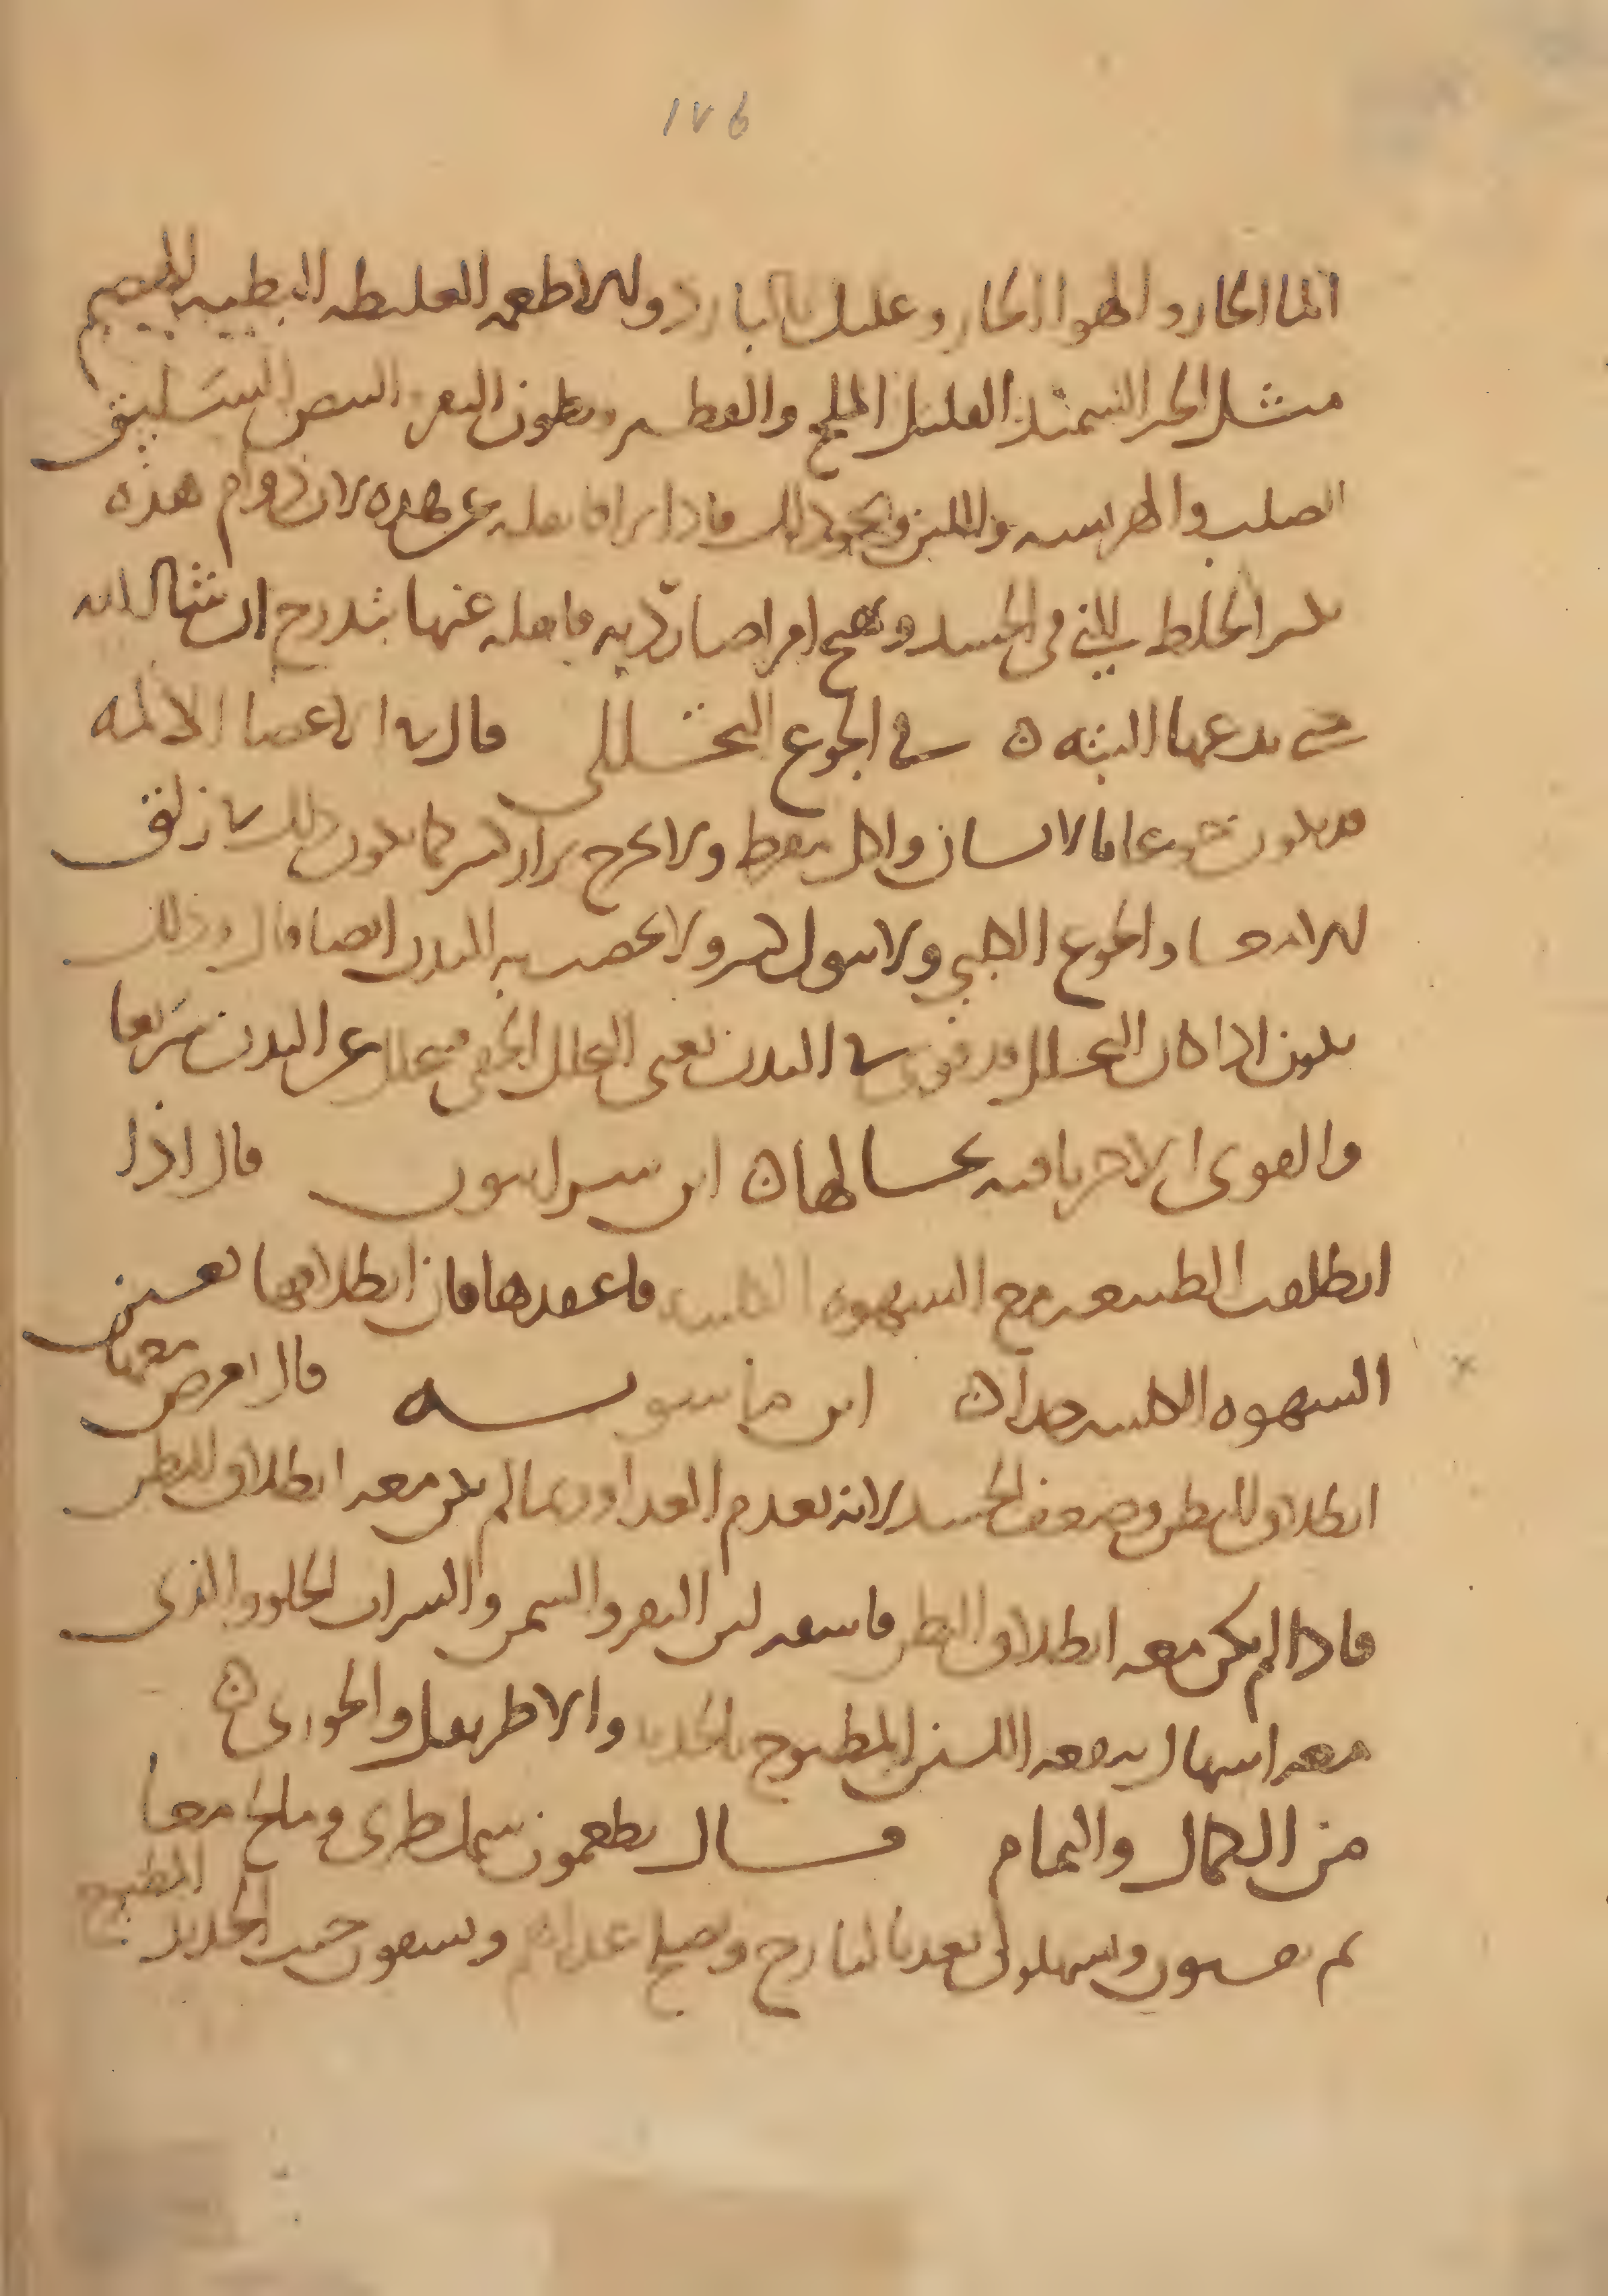 ١٧٦
الما الحار والهوا الحار وعليك بالبارد وكل الاطعمه الغليظه البطيه الهضم
مثل الخبز السميذ القليل الملح والفطير وبطون البقر والبيض السليق
الصلب والهريسه واللبن ونحو ذلك فاذا برا فانقله عن هذه لان دوام هذه
يكثر الخلط الني في الجسد ويهيج امراضا رديه فانقله عنها بتدرج ان شا الله
حتى يدعها البته ٥ في الجوع التحللي قال في الاعضا الالمه
قد يكون جوعا الانسان واكل مفرط ولا يخرج براز كثير كما يكون ذلك في زلق
الامعا والجوع الكلبي ولا بول كثير ولا يخصب البدن ايضا قال وذلك
يكون اذا كان التحلل قد قوي في البدن يعني التحلل الخفي فيتحلل عن البدن سريعا
والقوى الاخر باقيه بحالها ٥ ابن سرابيون قال اذا
انطلقت الطبيعه مع الشهوه الكلبيه فاعقدها فان انطلاقها يعين
الشهوه الكلبيه جدا ٥ ابن ماسويه قال يعرض معها
انطلاق البطن وضعف الجسد لانه يعدم الغذا وربما لم يكن معه انطلاق البطن
فاذا لم يكن معه انطلاق البطن فاسقه لبن البقر والسمن والشراب الحلو والذي
معه اسهال ينفعه اللبن المطبوخ بالحديد والاطريفل والخوزي ٥
من الكمال والتمام قال يطعمون سمك طري ومالح معا
ثم يقيون ويسهلون بعد بالايارج ويصلح غذاهم ويسقون خبث الحديد المطبوخ